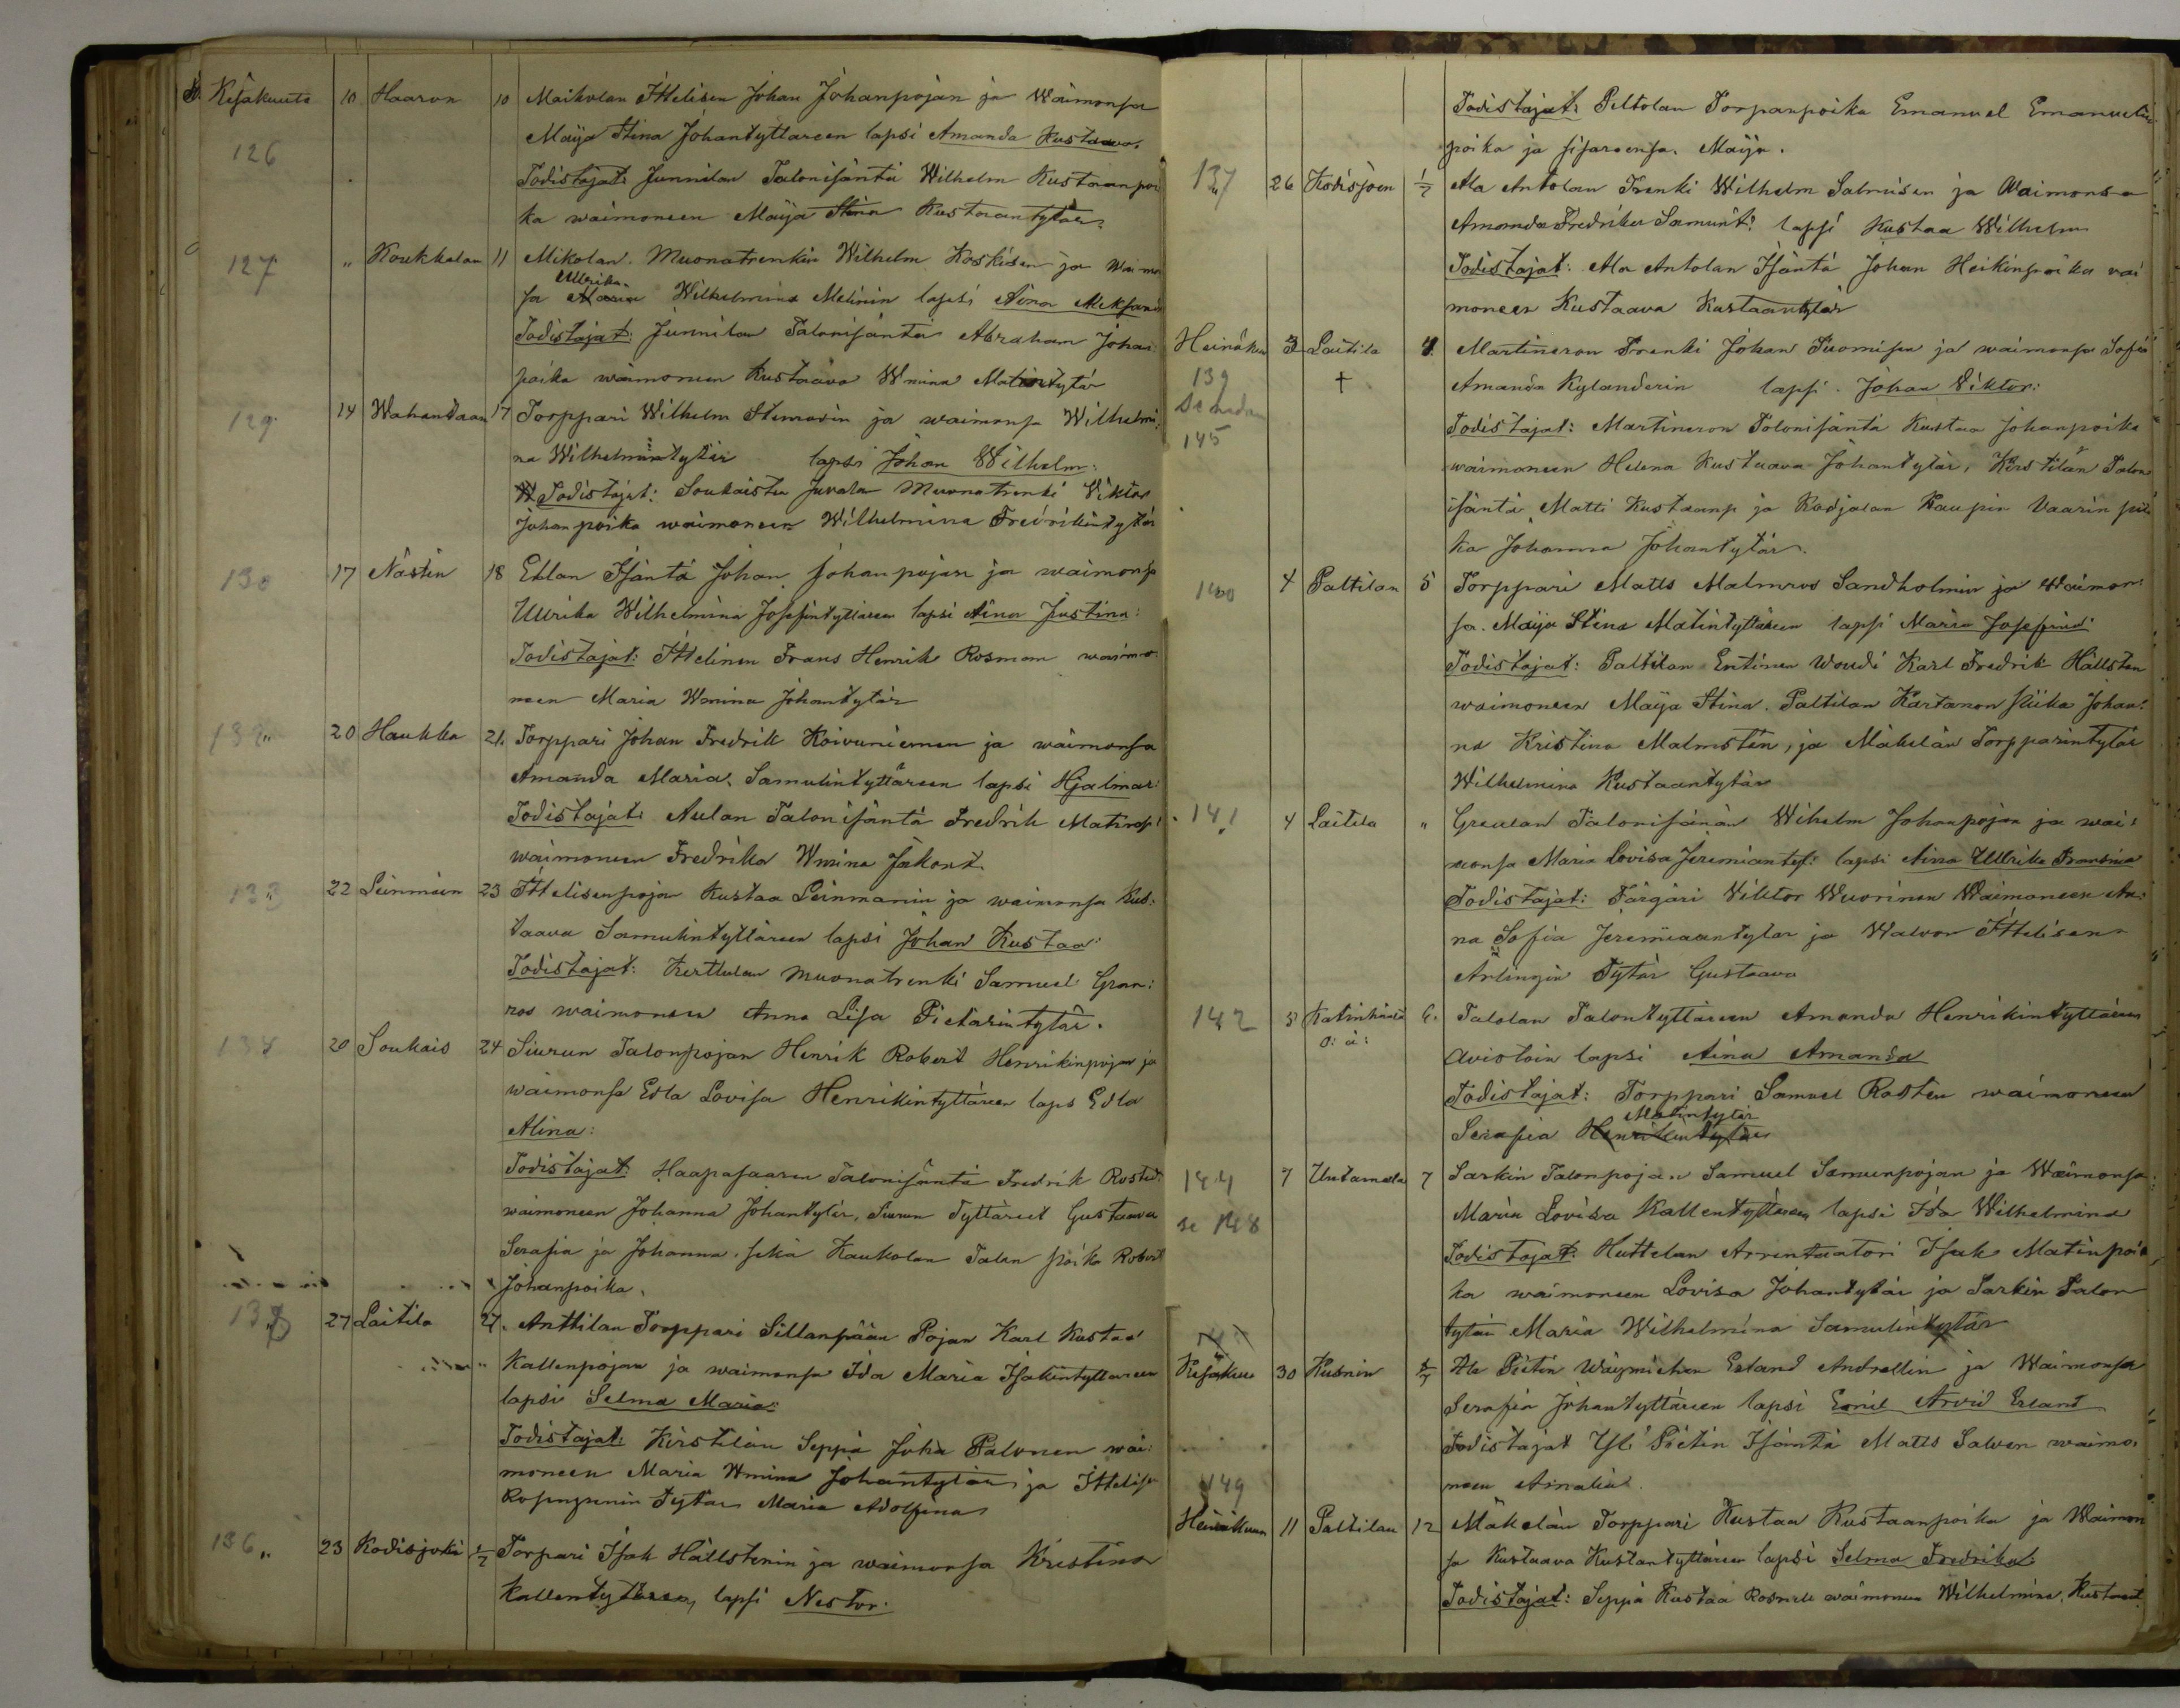 Kesäkuuta 10 Haaron 10 Maikolan Ittelisen Johan Johanpojan ja Waimonsa
126 Maija Stina Johantyttareen lapsi Amanda Kustaava.
Todistajat: Junnilan Talonisäntä Wilhelm Kustaanpoi
ka waimoneen Maija Stina Kustaantytär
127 " Koukkalan 11 Mikolan Muonatrenkin Wilhelm Koskisen ja Waimon
Ullrika
sa Wilhelmina Melinin lapsi Aina Aleksand
Todistajat: Junnilan Talonisäntä Abraham Johan
poika waimoneen Kustaava Wmina Matintytär
129 14 Wahantaan 17 Torppari Wilhelm Stenrosin ja waimonsa Wilhelmi:
na Wilhelmintytär lapsi Johan Wilhelm:
Todistajat: Soukaisten Juvala Muonatrenki Viktor
Johanpoika waimoneen Wilhelmina Fredrikintytär
130 17 Nästin 18 Eklan Isäntä Johan Johanpojan ja waimonsa
Ullrika Wilhelmina Josefintyttäreen lapsi Aina Justina:
Todistajat: Ittelinen Frans Henrik Rosman waimo
neen Maria Wmina Johantytär
132 " 20 Haukka 21. Torppari Johan Fredrik Koivuniemen ja waimonsa
Amanda Maria Samulintyttäreen lapsi Hjalmar:
Todistajat: Aulan Talonisäntä Fredrik Matinp:
waimoneen Fredrika Wmina Jakont.
133 22 Leinmäen 23 Ittelisenpojan Kustaa Leinmanin ja waimonsa Kus:
taava Samulintyttäreen lapsi Johan Kustaa:
Todistajat: Kerttulan Muonatrenki Samuel Gran:
ros waimoneen Anna Lisa Pietarintytär.
134 20 Soukais 24 Siurun Talonpojan Henrik Robert Henrikinpojan ja
waimonsa Edla Lovisa Henrikintyttäreen laps Edla
Alina:
Todistajat: Haapasaaren Talonisäntä Fredrik Rosted:
waimoneen Johanna Johantytär, Siurun Tyttäret Gustaava
Serafia ja Johanna, sekä Kaukolan Talon poika Robert
Johanpoika.
27 Laitila 27. Anttilan Torppari Sillanpään Pojan Karl Kustaa
Kallenpojan ja waimonsa Ida Maria Isakintyttareen
lapsi Selma Maria:
Todistajat: Kirstilän Seppä Juha Palonen wai:
moneen Maria Wmina Johantytär ja Ittelisen
tytär Maria Adolfina
136 " 23 Kodisjoki 1/7 Torpari Isak Hällstenin ja waimonsa Kristina
Kallentyttären, lapsi Nestor.
Todistajat: Peltolan Torpanpoika Emanuel Emanuelin
poika ja sisarensa Maija.
137 26 Kodisjoen 1/7 Ala Antolan Trenki Wilhelm Salmisen ja Waimonsa
Amanda Fredrika Samunt: lapsi Kustaa Wilhelm
Todistajat: Ala Antolan Isäntä Johan Heikinpoika wai
moneen Kustaava Kustaantytär
Heinäkuu 3 Laitila 4. Martineron Trenki Johan Tuomisen ja waimonsa Sofia
139 † Amanda Kylanderin lapsi. Johan Viktor:
Todistajat: Martineron Talonisäntä Kustaa Johanpoika
145
waimoneen Helena Kustaava Johantytär, Kirstilän Talon
isäntä Matti Kustaanp ja Kodjalan Kaupin Vaarin pii
ka Johanna Johantytär.
140 4 Paltilan 5 Torppari Matts Malmros Sandholmin ja Waimon
sa Maija Stina Matintyttäreen lapsi Maria Josefina
Todistajat: Paltilan Entinen Woudi Karl Fredrik Hällsten
waimoneen Maija Stina. Paltilan Kartanon piika Johan:
na Kristina Malmsten, ja Mäkelän Torpparintytär
Wilhelmina Kustaantytär
141 4 Laitila " Talonisänän Wihelm Johanpojan ja wai:
monsa Maria Lovisa Jeremiantyt: lapsi Aina Ullrika Fransina
Todistajat: Färgäri Viktor Wuorinen Waimoneen An:
na Sofia Jeremiaantytar ja Walvon Ittelisen
Arlingin Tytär Gustaava
142 5 Katinhäntä 6. Talolan Talontyttäreen Amanda Henrikintyttäreen
o: ä: Aviotoin lapsi Aina Amanda
Todistajat: Torppari Samuel Rosten waimoneen
Matintytär
Serafia Henrikintytär
144 7 Untamala 7 Sarkin Talonpojan Samuel Samuenpojan ja Waimonsa:
se 148 Maria Lovisa Kallentyttäreen lapsi Ida Wilhelmina
Todistajat: Huttelan Arrentaatori Isak Matinpoi
ka waimoneen Lovisa Johantytär ja Sarkin Talon
tytär Maria Wilhelmina Samulintytär
Kesäkuu 30 Kusnin 8/7 Ala Pietin Erland Andrellin ja Waimonsa
Serafia Johantyttäreen lapsi Emil Arvid Erland
Todistajat Yli Pietin Isäntä Matts Salven waimo.
149 neen Amalia.
Heinäkuun 11 Paltilan 12 Mäkelän Torppari Kustaa Kustaanpoika ja Waimon
sa Kustaava Kustantyttäreen lapsi Selma Fredrika:
Todistajat: Seppä Kustaa waimoneen Wilhelmina Kustaant.